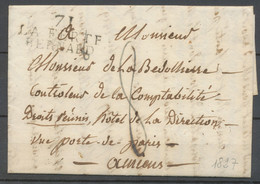 71
LA FERTÉ
BERNARD
A Monsieur
Monsieur De La Bedollierre
Controleur de la Comptabilité
Droits réunis, hôtel de la Direction
Rue porte de paris
amiens
1827